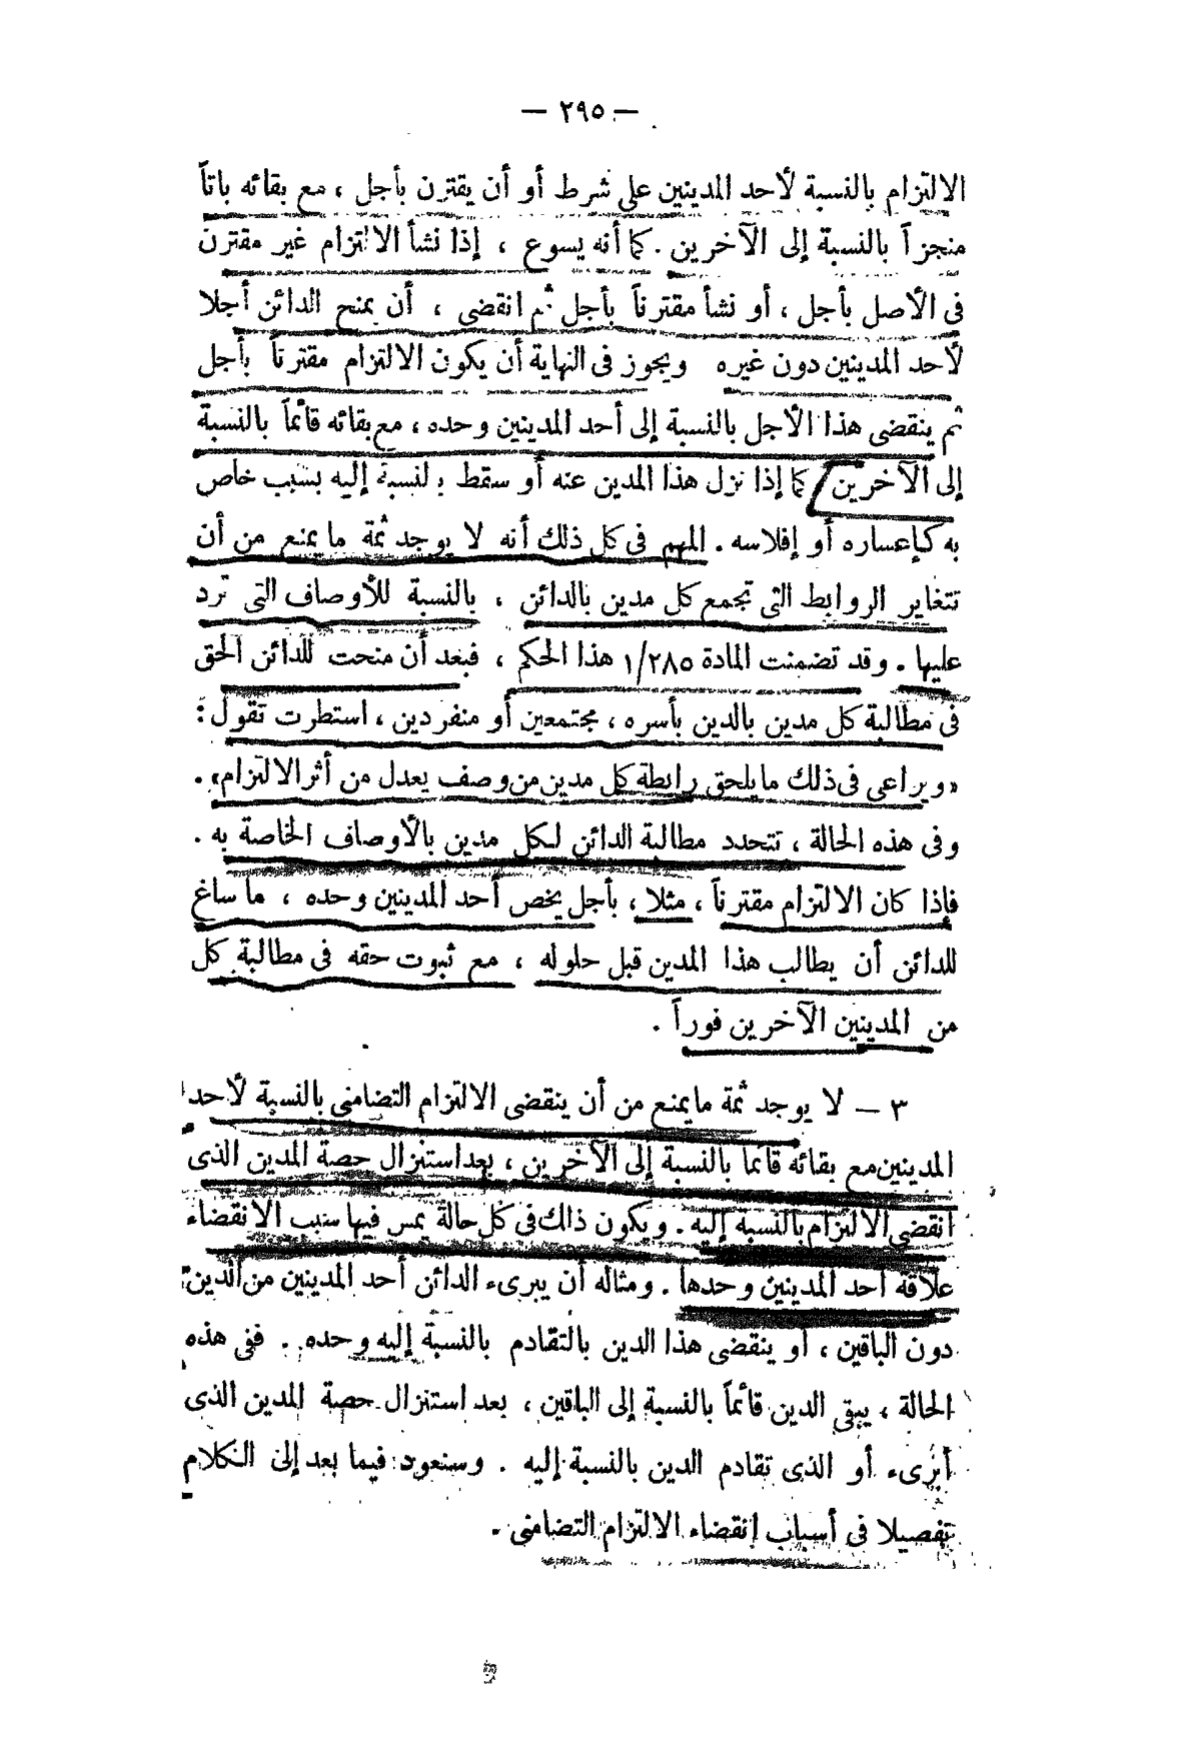 — ٢٩٥ —
الالتزام بالنسبة لأحد المدينين على شرط أو أن يقترن بأجل ، مع بقائه باتاً
منجزاً بالنسبة إلى الآخرين . كما أنه يسوع ، إذا نشأ الالتزام غير مقترن
فى الأصل بأجل ، أو نشأ مقترناً بأجل ثم انقضى ، أن يمنح الدائن أجلا
لأحد المدينين دون غيره ويجوز فى النهاية أن يكون الالتزام مقترناً بأجل
ثم ينقضى هذا الأجل بالنسبة إلى أحد المدينين وحده ، مع بقائه قائماً بالنسبة
إلى الآخرين كما إذا نزل هذا المدين عنه أو سقط بالنسبة إليه بسبب خاص
به كإعساره أو إفلاسه . المهم فى كل ذلك أنه لا يوجد ثمة ما يمنع من أن
تتغاير الروابط التى تجمع كل مدين بالدائن ، بالنسبة للأوصاف التى ترد
عليها . وقد تضمنت المادة ١/٢٨٥ هذا الحكم ، فبعد أن منحت للدائن الحق
فى مطالبة كل مدين بالدين بأسره ، مجتمعين أو منفردين ، استطرت تقول :
« ويراعى فى ذلك ما يلحق رابطة كل مدين من وصف يعدل من أثر الالتزام » .
وفى هذه الحالة ، تتحدد مطالبة الدائن لكل مدين بالأوصاف الخاصة به .
فإذا كان الالتزام مقترناً ، مثلا ، بأجل يخص أحد المدينين وحده ، ما ساغ
للدائن أن يطالب هذا المدين قبل حلوله ، مع ثبوت حقه فى مطالبة كل
من المدينين الآخرين فوراً .
٣ — لا يوجد ثمة ما يمنع من أن ينقضى الالتزام التضامنى بالنسبة لأحد
المدينين مع بقائه قائما بالنسبة إلى الآخرين ، بعد استنزال حصة المدين الذى
انقضى الالتزام بالنسبة إليه . ويكون ذلك فى كل حالة يمس فيها سبب الانقضاء
علاقة أحد المدينين وحدها . ومثاله أن يبرىء الدائن أحد المدينين من الدين
دون الباقين ، أو ينقضى هذا الدين بالتقادم بالنسبة إليه وحده . ففى هذه
الحالة ، يبقى الدين قائماً بالنسبة إلى الباقين ، بعد استنزال حصة المدين الذى
أبرىء أو الذى تقادم الدين بالنسبة إليه . وسنعود فيما بعد إلى الكلام
تفصيلا فى أسباب إنقضاء الالتزام التضامنى .